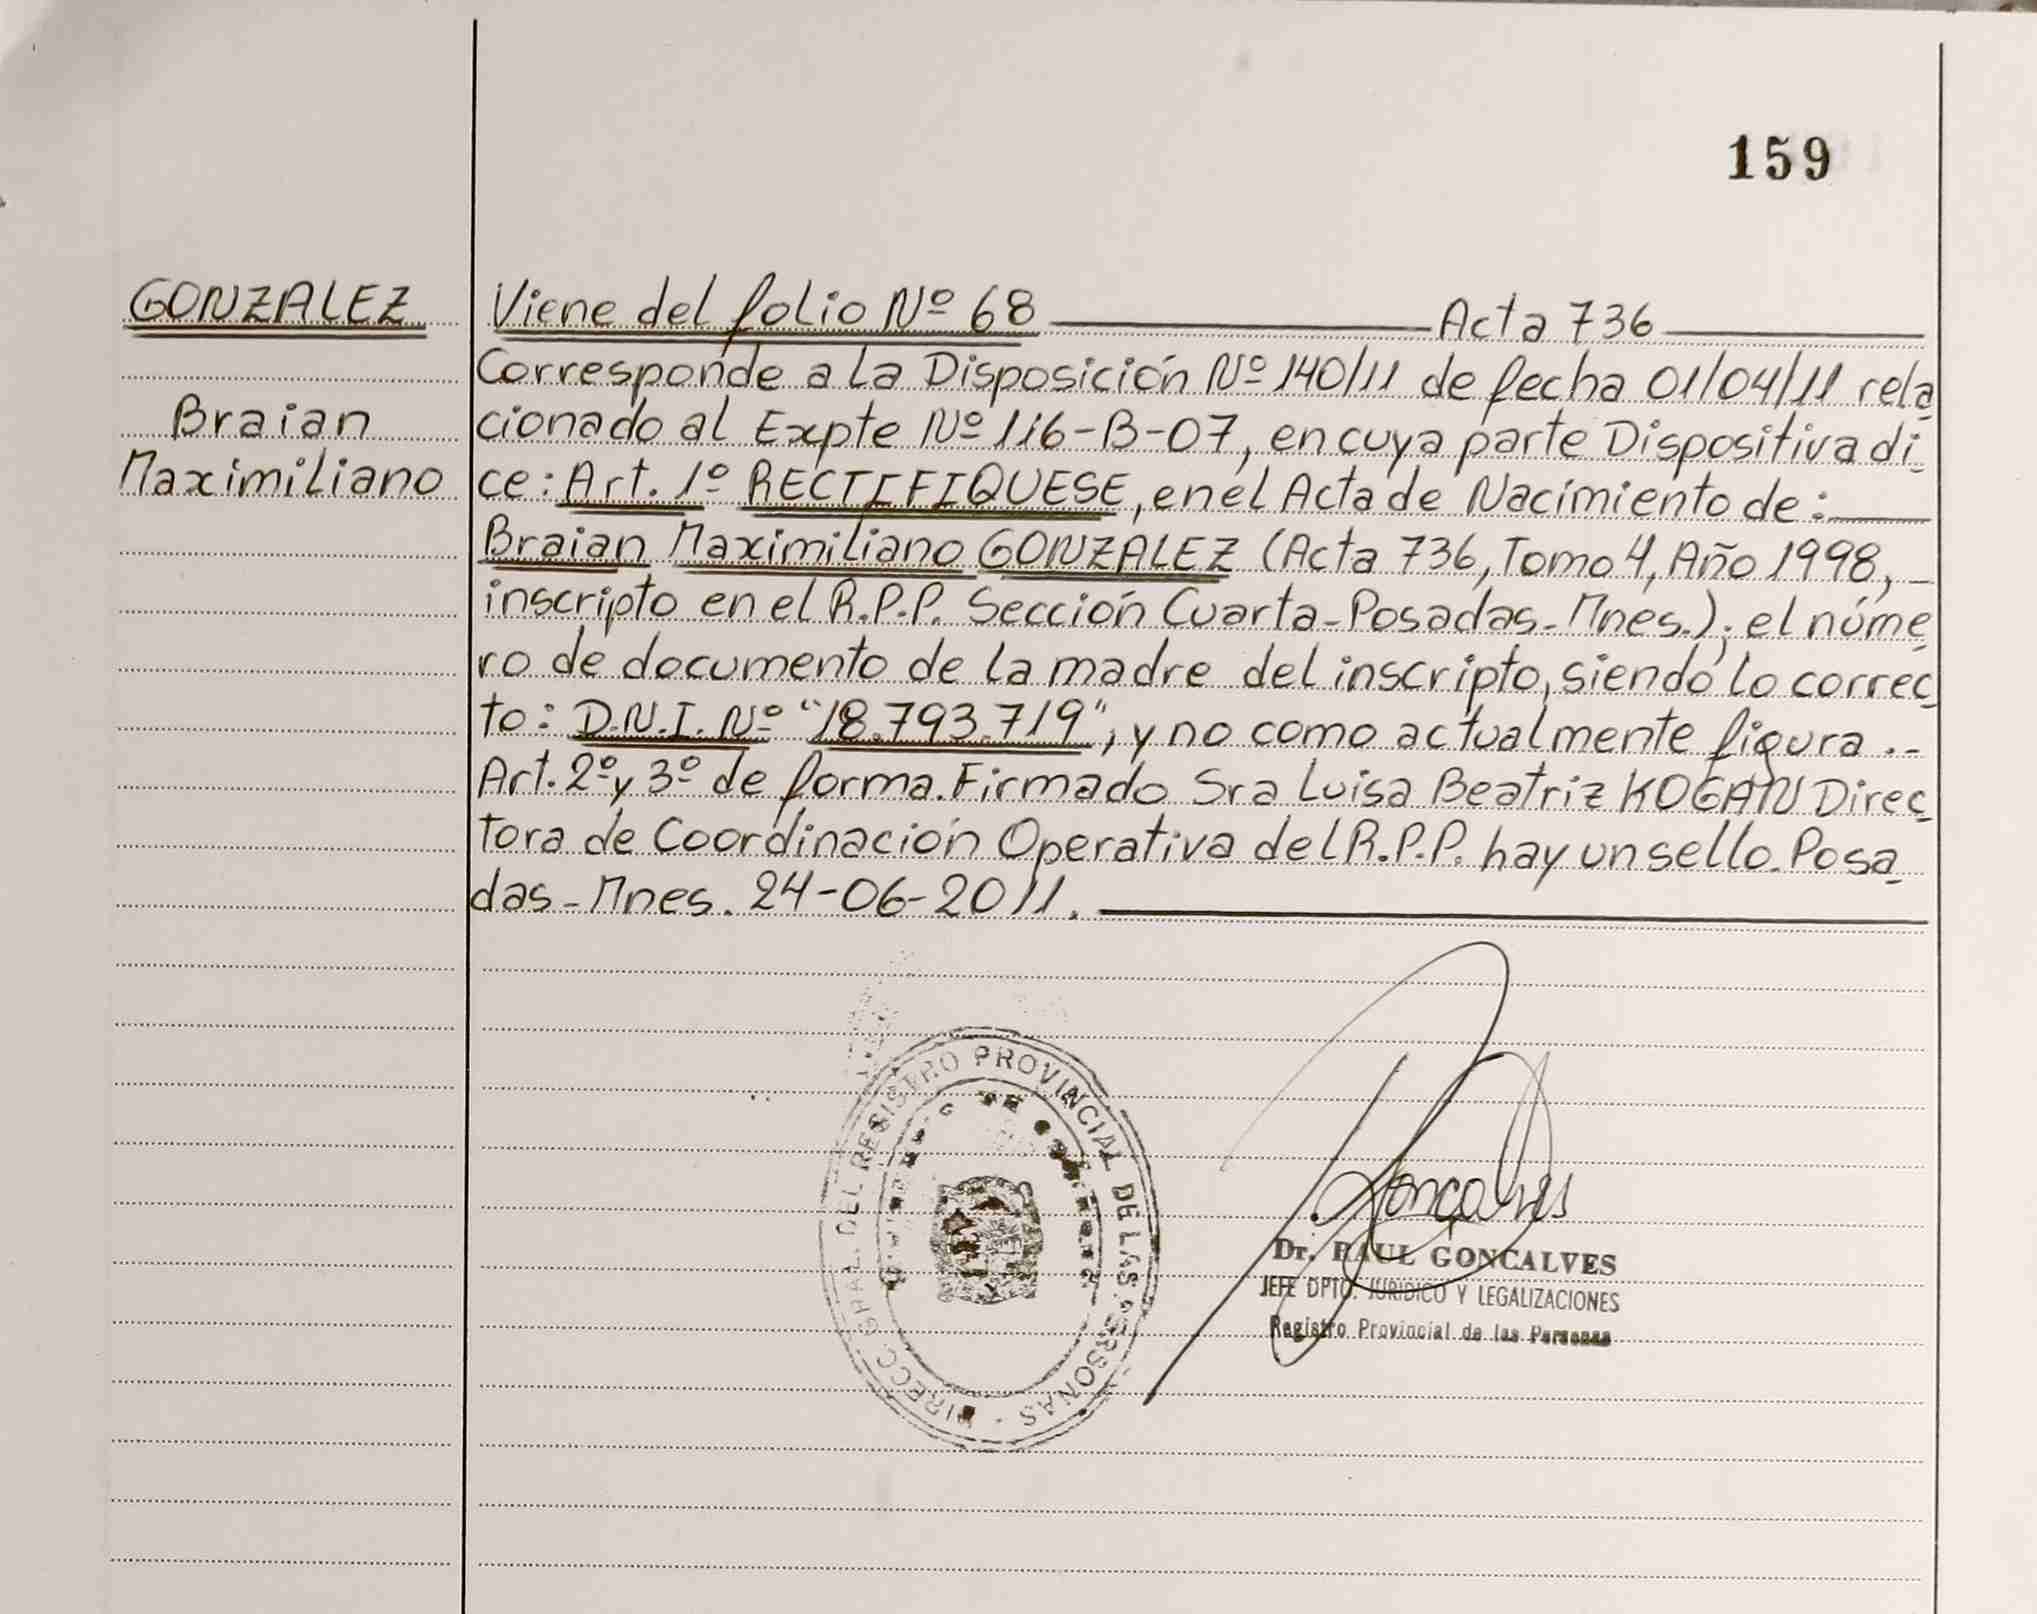 159
GONZALEZ
Braian
Maximiliano
Viene del folio Nº 68 Acta 736
Corresponde a la Disposición Nº 140/11 de fecha 01/04/11 rela
cionado al Expte Nº 116-B-07, en cuya parte Dispositiva di
ce: Art. 1º RECTIFIQUESE, en el Acta de Nacimiento de:
Braian Maximiliano GONZALEZ (Acta 736, Tomo 4, Año 1998,
inscripto en el R.P.P. Sección Cuarta-Posadas-Mnes.); el núme
ro de documento de la madre del inscripto, siendo lo correc
to: D.N.I. Nº "18.793.719", y no como actualmente figura.-
Art. 2º y 3º de forma. Firmado Sra Luisa Beatriz KOGAN Direc
tora de Coordinación Operativa del R.P.P. hay un sello. Posa
das-Mnes. 24-06-2011.
DIRECC. GRAL. DEL REGISTRO PROVINCIAL DE LAS PERSONAS
Goncalves
Dr. RAUL GONCALVES
JEFE DPTO. JURIDICO Y LEGALIZACIONES
Registro Provincial de las Personas